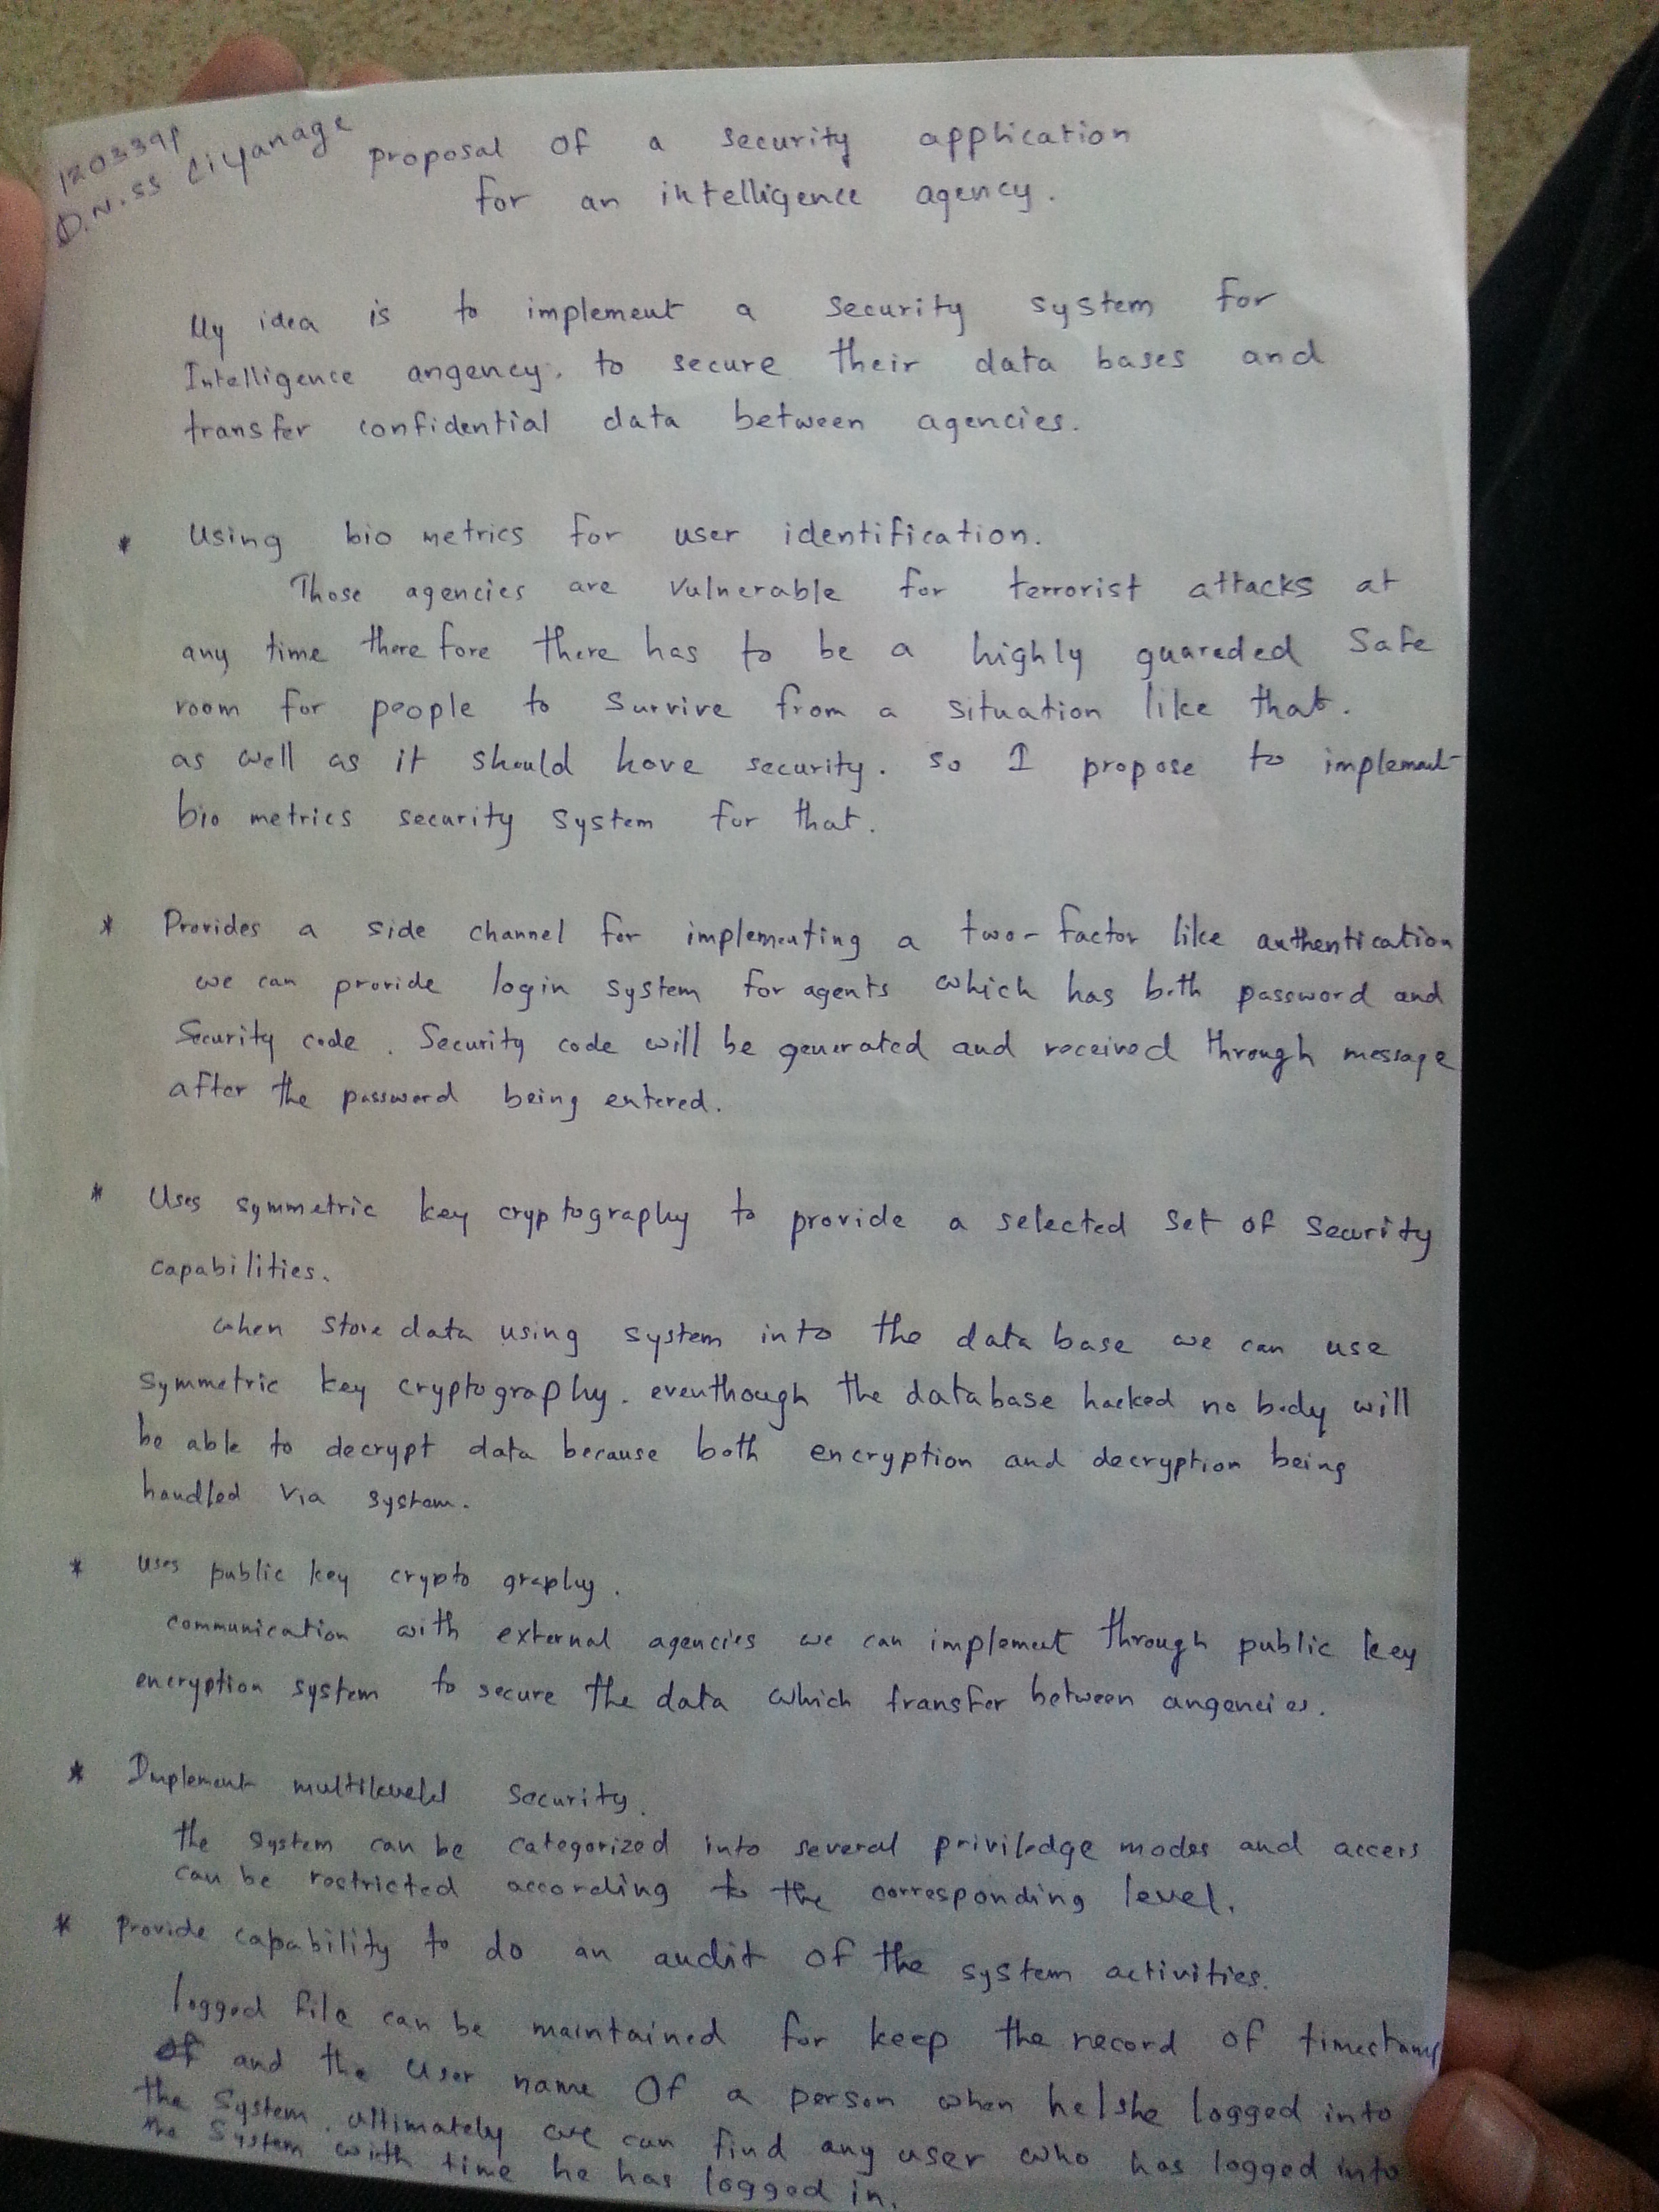 120339P
D.N.SS Liyanage
proposal of a security application
for an intelligence agency.
My idea is to implement a security system for
Intelligence angency. to secure their data bases and
transfer confidential data between agencies.
* Using bio metrics for user identification.
Those agencies are vulnerable for terrorist attacks at
any time there fore there has to be a highly guareded safe
room for people to survive from a situation like that.
as well as it should have security. so I propose to implement
bio metrics security system for that.
* Provides a side channel for implementing a two-factor like authentication
we can provide login system for agents which has both password and
Security code. Security code will be generated and received through message
after the password being entered.
* Uses symmetric key cryptography to provide a selected set of security
capabilities.
when store data using system into the data base we can use
symmetric key cryptography. eventhough the database hacked no body will
be able to decrypt data because both encryption and decryption being
handled via system.
* Uses public key crypto graphy.
communication with external agencies we can implement through public key
encryption system to secure the data which transfer between angencies.
* Implement multileveld security.
the system can be categorized into several priviledge modes and access
can be restricted according to the corresponding level.
* Provide capability to do an audit of the system activities.
logged file can be maintained for keep the record of timestamp
and the user name of a person when he/she logged into
the system. ultimately we can find any user who has logged into
the system with time he has logged in.